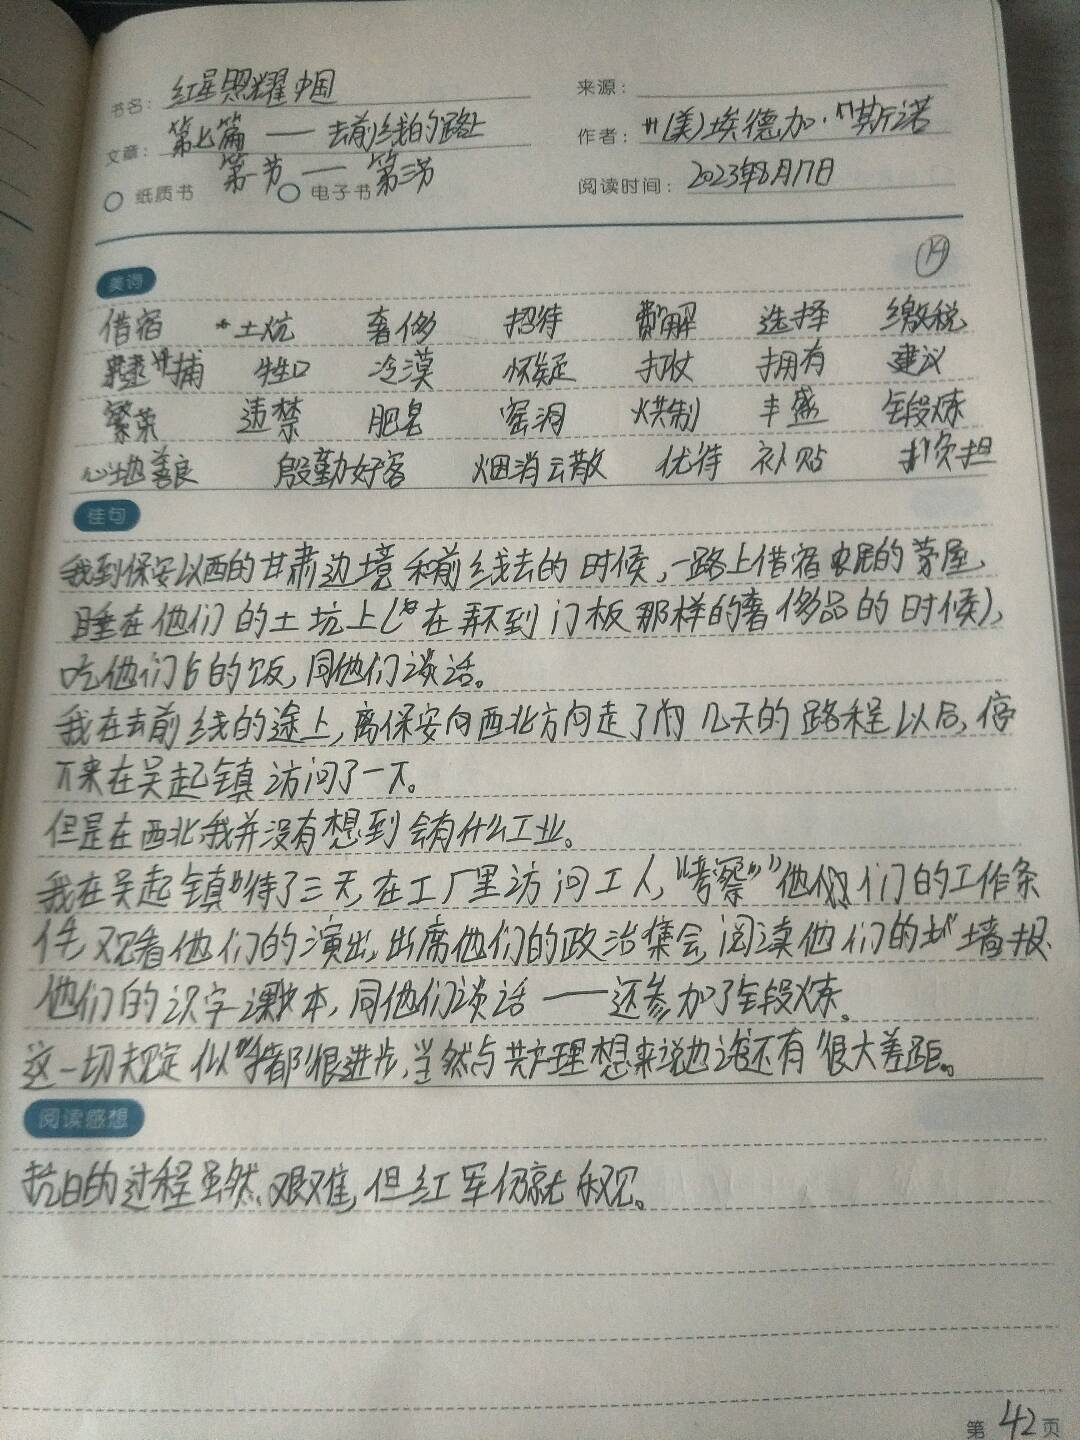 书名：红星照耀中国
来源：
文章：第七篇——去前线的路上
作者：(美)埃德加·斯诺
第一节——第三节
纸质书 电子书
阅读时间：2023年8月17日
美词
14
借宿 土炕 奢侈 招待 费解 选择 缴税
逮捕 牲口 冷漠 怀疑 打仗 拥有 建议
繁荣 违禁 肥皂 窑洞 烘制 丰盛 锻炼
心地善良 殷勤好客 烟消云散 优待 补贴 负担
佳句
我到保安以西的甘肃边境和前线去的时候，一路上借宿农民的茅屋，
睡在他们的土坑上(在弄不到门板那样的奢侈品的时候)，
吃他们的饭，同他们谈话。
我在去前线的途上，离保安向西北方向走了几天的路程以后，停
下来在吴起镇访问了一下。
但是在西北，我并没有想到会有什么工业。
我在吴起镇待了三天，在工厂里访问工人，“考察”他们的工作条
件，观看他们的演出，出席他们的政治集会，阅读他们的墙报、
他们的识字课本，同他们谈话——还参加了锻炼。
这一切规定似乎都很进步，当然与共产理想来说也许还有很大差距。
阅读感想
抗日的过程虽然艰难，但红军仍就乐观。
第42页